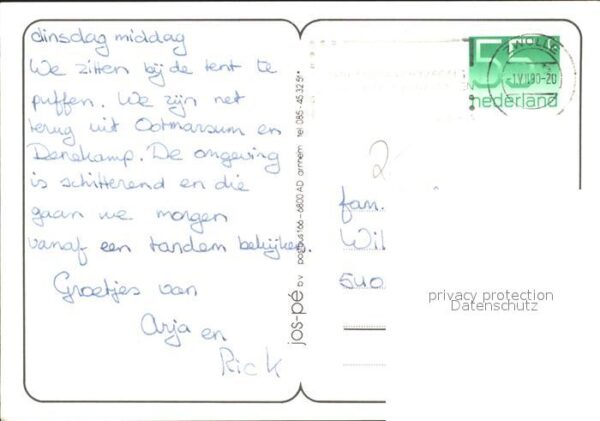 dinsdag middag
We zitten bij de tent te
puffen. We zijn net
terug uit Ootmarsum en
Denekamp. De omgeving
is schitterend en die
gaan we morgen
vanaf een tandem bekijken.
Groetjes van
Arja en
Rick
jos-pé bv postbus 166 - 6800 AD arnhem tel. 085-45 32 51*
ZWOLLE
55
nederland
fam.
Wil
540
privacy protection
Datenschutz